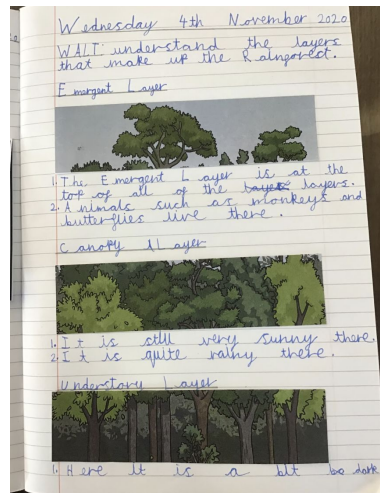 Wednesday 4th November 2020
WALT: understand the layers
that make up the Rainforest.
Emergent Layer
1. The Emergent Layer is at the
top of all of the layers.
2. Animals such as monkeys and
butterflies live there.
Canopy Layer
1. It is still very sunny there.
2. It is quite rainy there.
Understory Layer
1. Here it is a bit dark